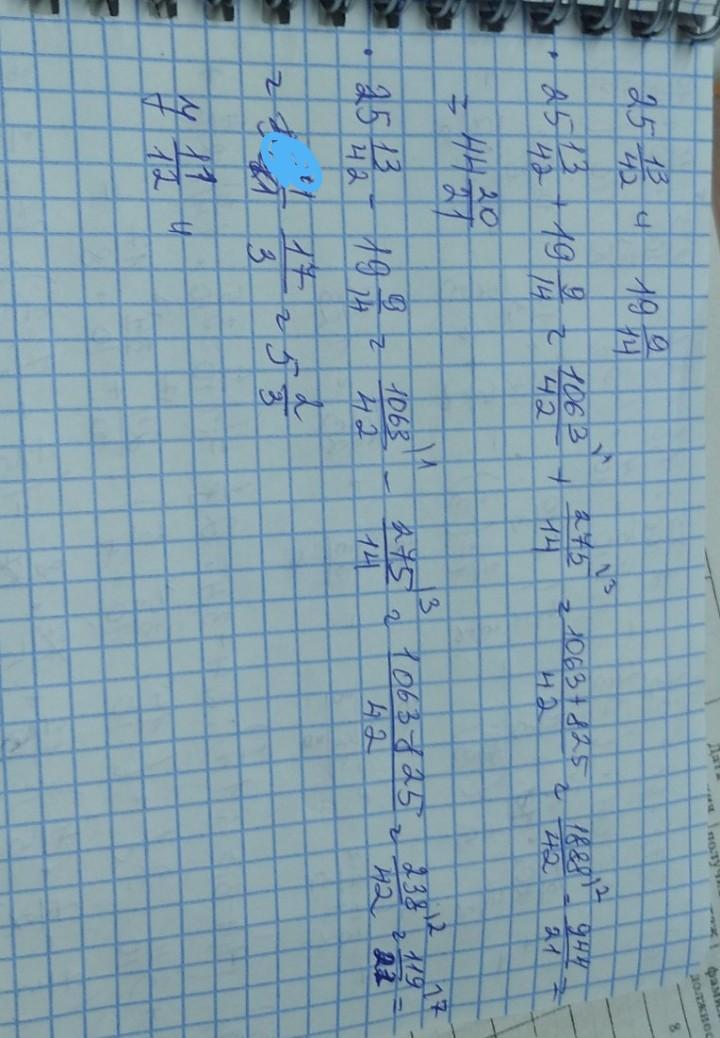 25 13/42 и 19 9/14
· 25 13/42 + 19 9/14 = 1063/42 \1 + 275/14 \3 = 1063+825/42 = 1888/42 \2 = 944/21 =
= 44 20/21
· 25 13/42 - 19 9/14 = 1063/42 \1 - 275/14 \3 = 1063-825/42 = 238/42 \2 = 119/21 \7 =
= 17/3 = 5 2/3
у 11/12 и